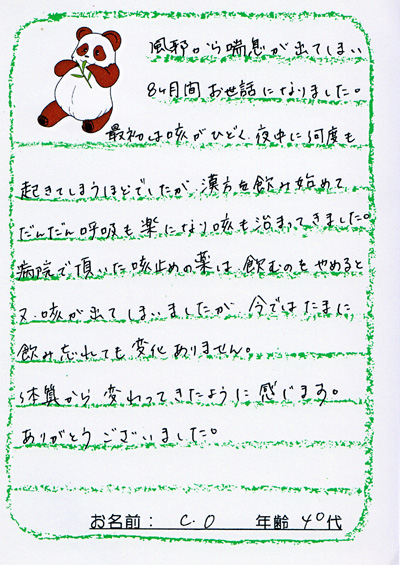 風邪から喘息が出てしまい
8ヶ月間お世話になりました。
最初は咳がひどく、夜中に何度も
起きてしまうほどでしたが、漢方を飲み始めて
だんだん呼吸も楽になり咳も治まってきました。
病院で頂いた咳止めの薬は、飲むのをやめると
又、咳が出てしまいましたが、今ではたまに
飲み忘れても変化ありません。
体質から変わってきたように感じます。
ありがとうございました。
お名前: C.O 年齢 40代